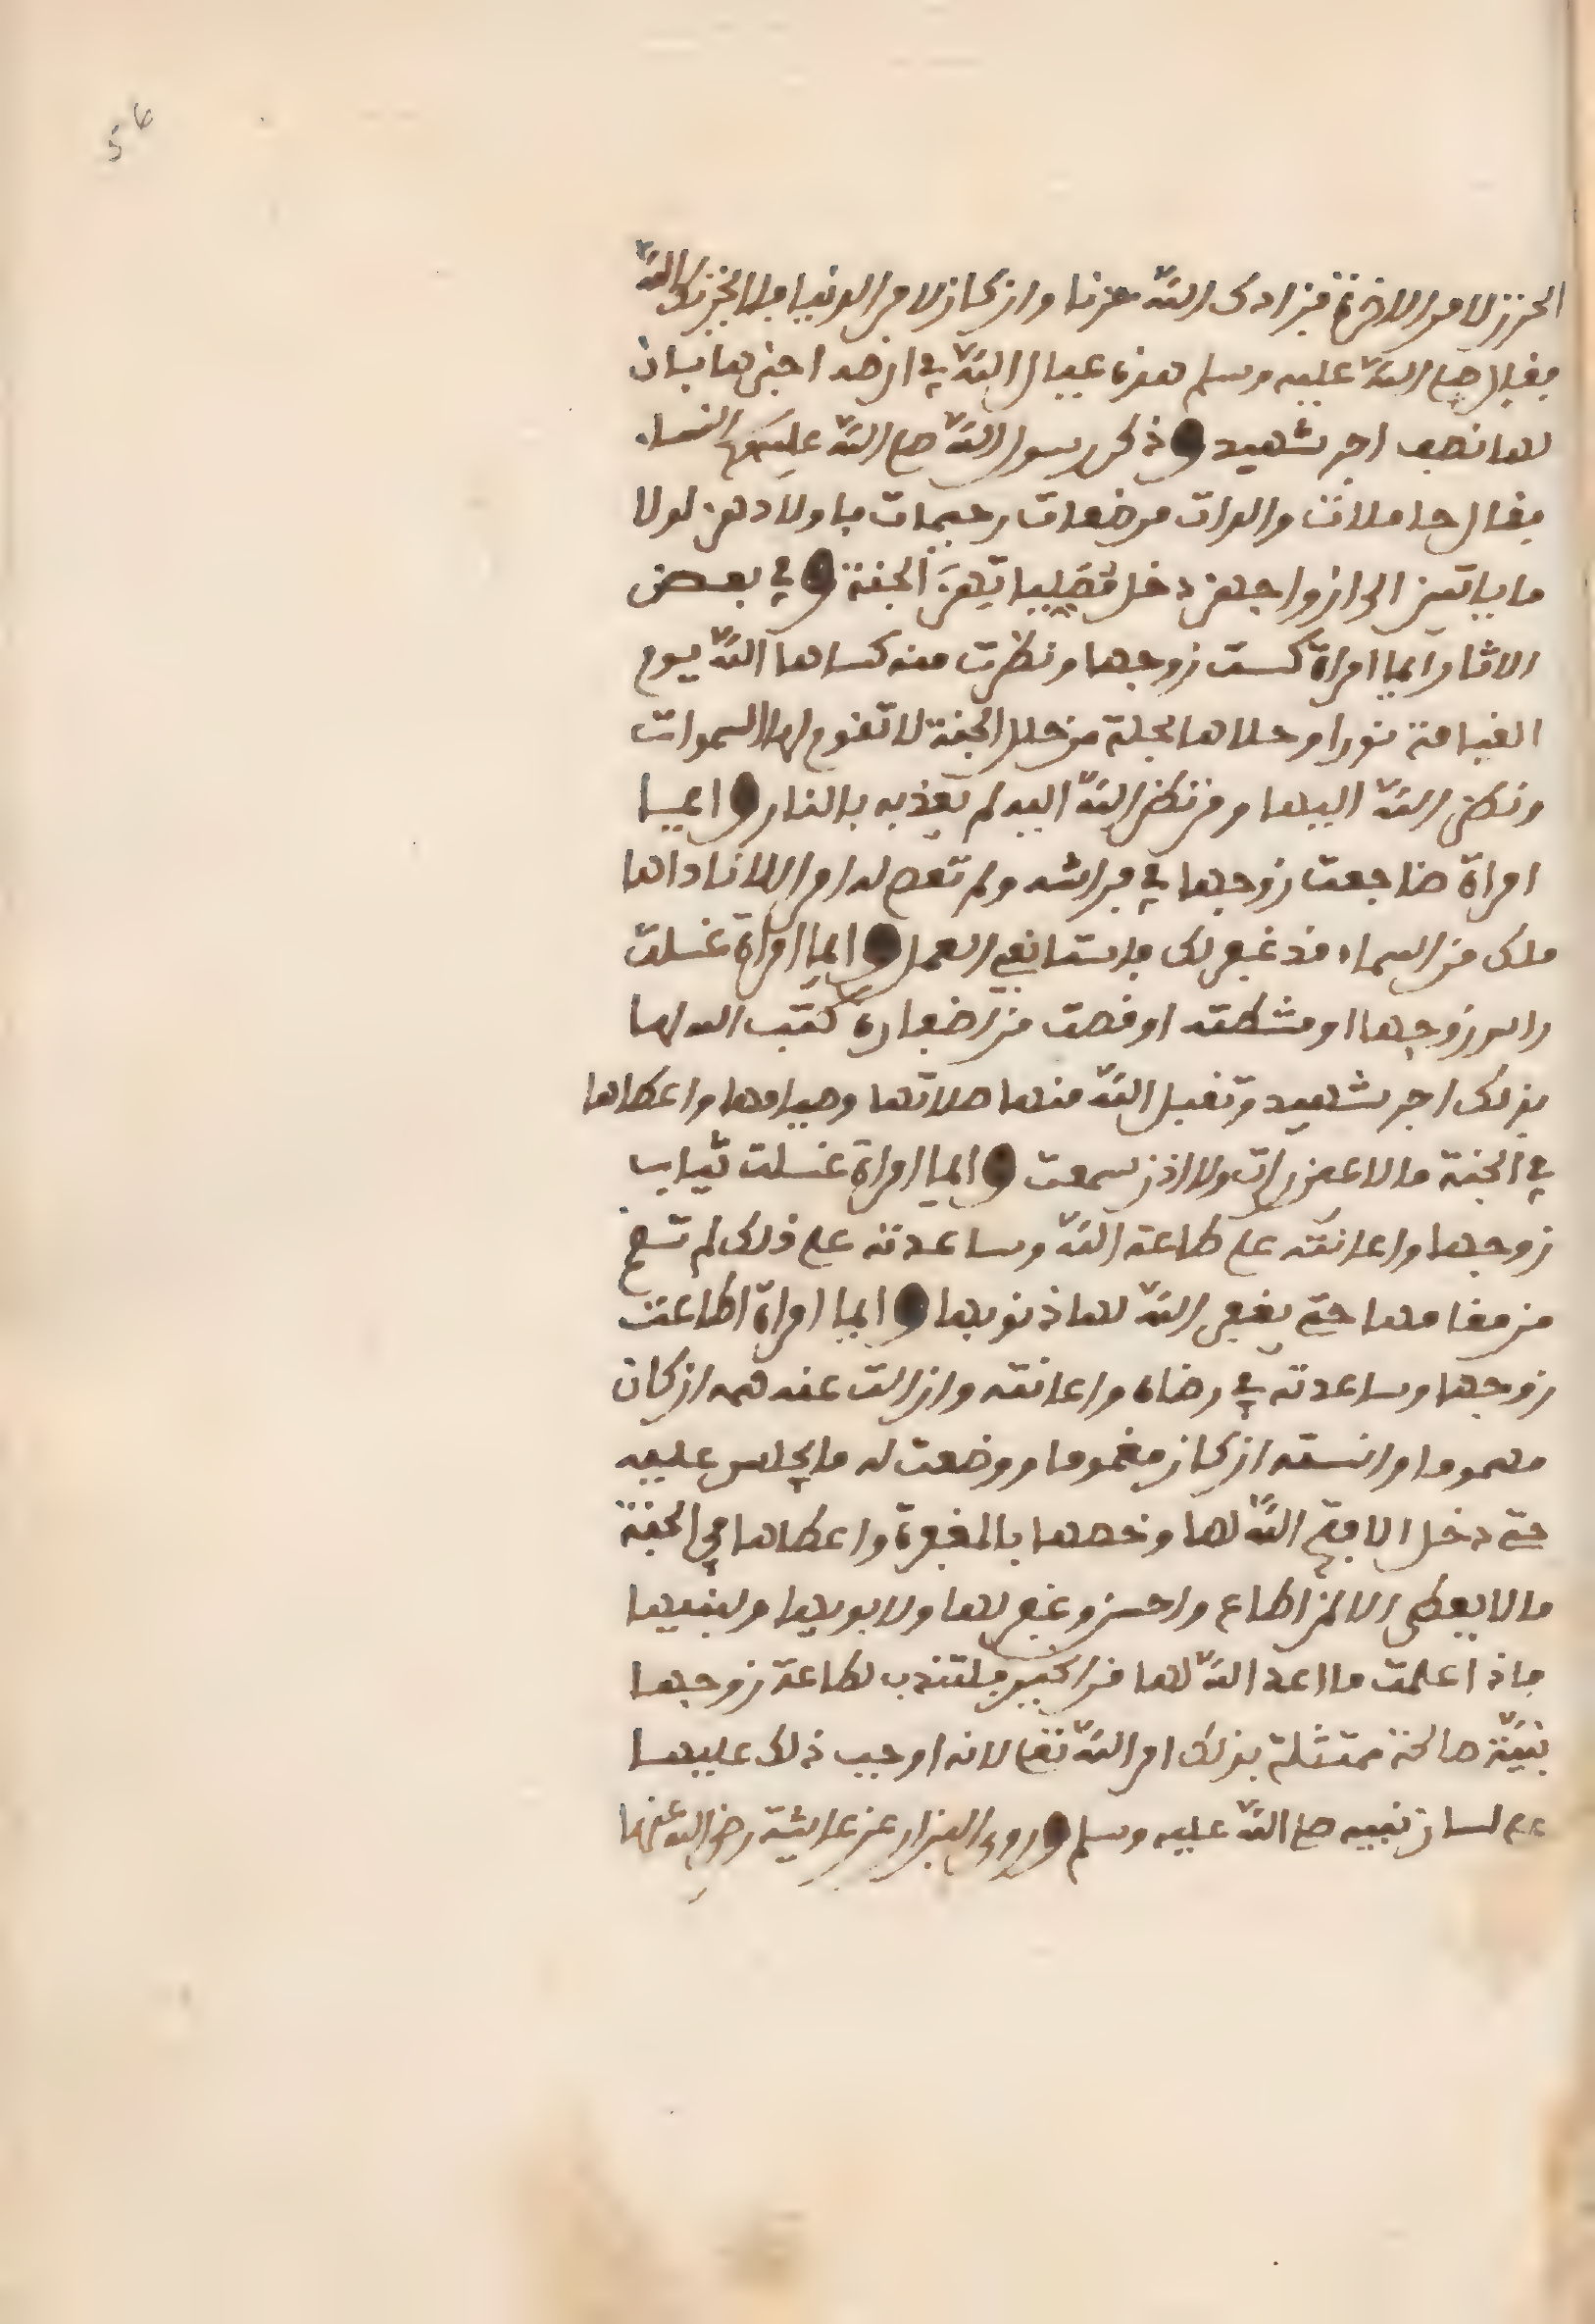 54
الحزن لامر الاخرة فزادك الله حزنا وان كان لامر الدنيا فلا احزنك الله
فقال صلى الله عليه وسلم هذه عمال الله في ارضه اخبرها بان
لها نصف اجر شهيد وذكر رسول الله صلى الله عليه النساء
فقال حاملات والدات مرضعات رحيمات باولادهن لولا
ما ياتين الى ازواجهن دخل مصلياتهن الجنة وفي بعض
الاثار ايما امراة كست زوجها ونظرت منه كساها الله يوم
القيامة نورا وحلاها بحلة من حلل الجنة لا تقوم لها السموات
ونظر الله اليها ومن نظر الله اليه لم يعذبه بالنار وايما
امراة ضاجعت زوجها في فراشه ولم تعص له امرا الا ناداها
ملك من السماء قد غفر لك فاستانفي العمل وايما امراة غسلت
راس زوجها او مشطته او قصت من اضفاره كتب الله لها
بذلك اجر شهيد وتقبل الله منها صلاتها وصيامها واعطاها
في الجنة ما لا عين رات ولا اذن سمعت وايما امراة غسلت ثياب
زوجها واعانته على طاعة الله وساعدته على ذلك لم تقم
من مقامها حتى يغفر الله لها ذنوبها وايما امراة اطاعت
زوجها وساعدته في رضاه واعانته وازالت عنه همه ان كان
مهموما وانسته ان كان مغموما ووضعت له ما يجلس عليه
حتى دخل الا فتح الله لها وخصها بالمغفرة واعطاها في الجنة
ما لا يعطى الا لمن اطاع واحسن وغفر لها ولابويها ولبنيها
فاذا علمت ما اعد الله لها من الخير فلتنتدب لطاعة زوجها
بنية صالحة ممتثلة بذلك امر الله تعلى لانه اوجب ذلك عليها
على لسان نبيه صلى الله عليه وسلم وروى البزار عن عائشة رضي الله عنها